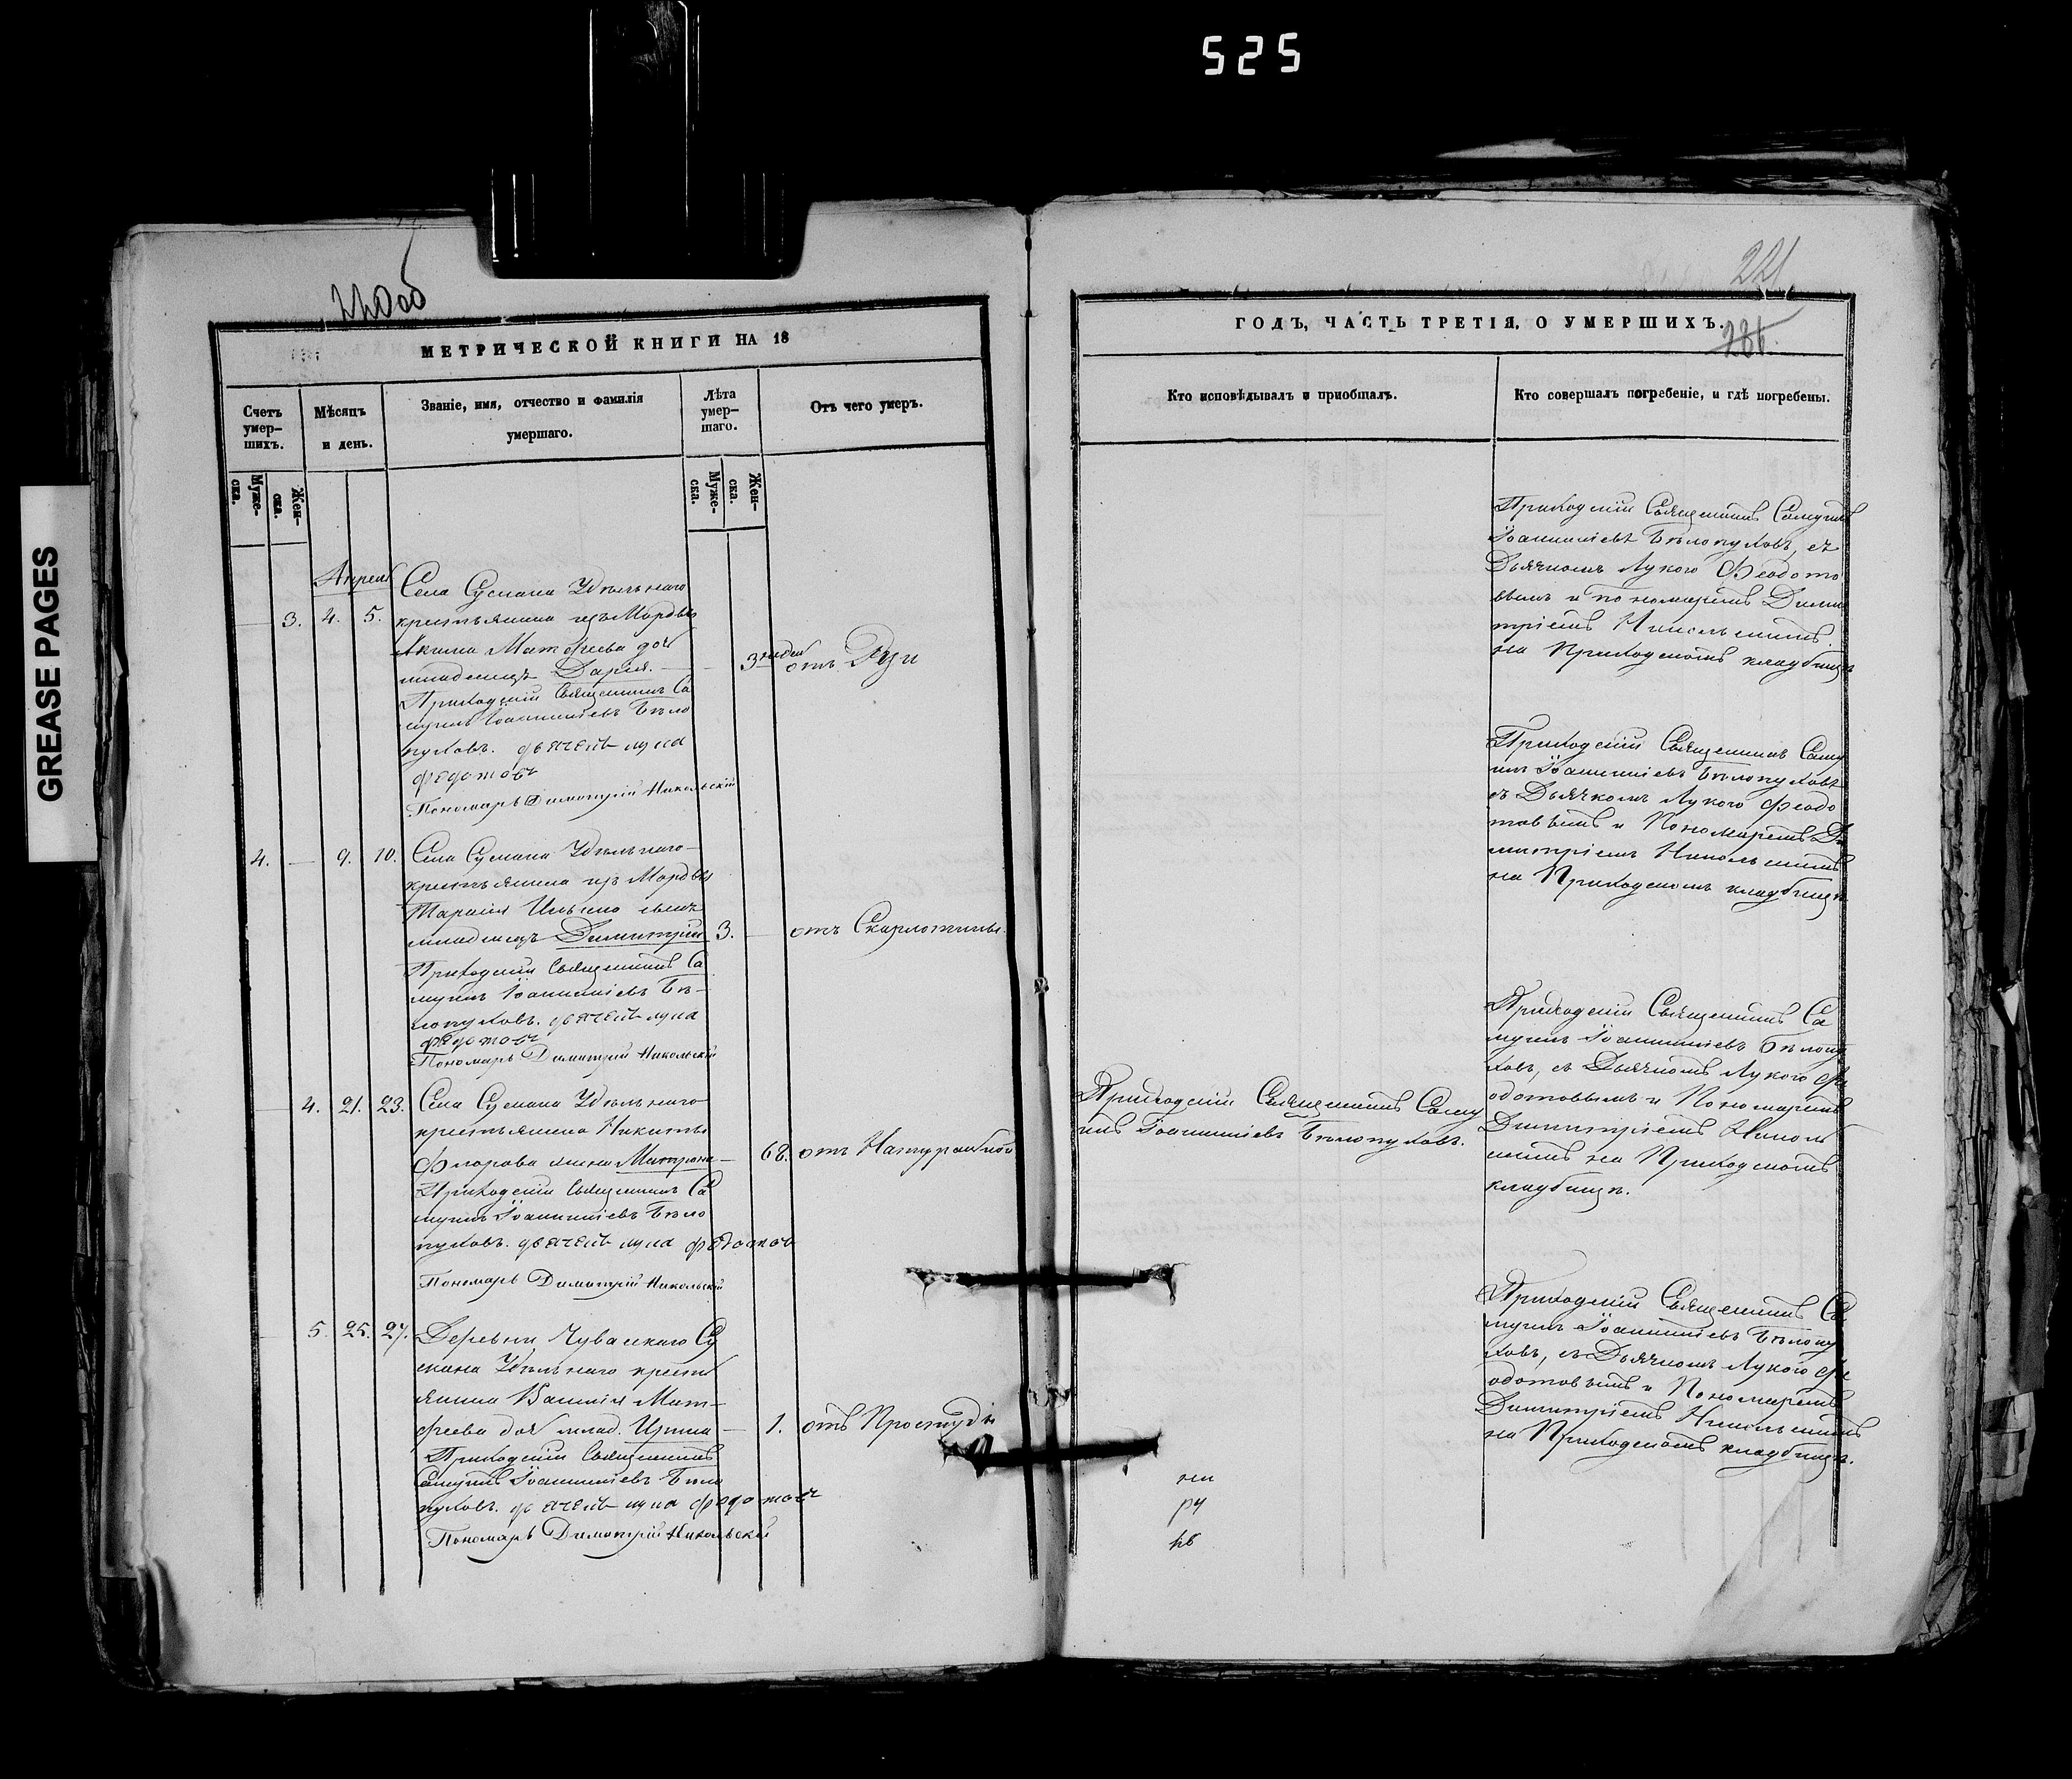 525
GREASE PAGES
220об
МЕТРИЧЕСКОЙ КНИГИ НА 18
Счетъ умер-
шихъ.
Мѣсяцъ
и день.
Званіе, имя, отчество и фамилія
умершаго.
Лѣта
умер-
шаго.
Отъ чего умеръ.
Муже-
ска.
Жен-
ска.
Муже-
ска.
Жен-
ска.
Апрель
Села Сускана Удѣльнаго
3. 4. 5. крестьянина изъ Мордвы
Акима Матфѣева дочь
младенецъ Дарія. 3 отъ
Приходскій Священникъ Са
муилъ Іоанникіевъ Бѣло
пуховъ. дьячекъ лука
федотовъ
Пономарь Димитрій Никольскій
4. — 9. 10. Села Сускана Удѣльнаго
крестьянина изъ Мордвы
Тарасія Ильина сынъ
младенецъ Димитрій 3. отъ Скарлотины.
Приходскій Священникъ Са
муилъ Іоанникіевъ Бѣ-
лопуховъ. дьячекъ лука
федотовъ
Пономарь Димитрій Никольскій
4. 21. 23. Села Сускана Удѣльнаго
крестьянина Никиты
Флорова жена Матрона — 68. отъ Натуральной
Приходскій Священникъ Са
муилъ Іоанникіевъ Бѣло
пуховъ. дьячекъ лука федотовъ
Пономарь Димитрій Никольскій
5. 25. 27. Деревни Чувашскаго Су
скана Удѣльнаго кресть
янина Василія Мат-
фѣева дочь млад. Ирина — 1. отъ Простуды
Приходскій Священникъ
Самуилъ Іоанникіевъ Бѣло
пуховъ. дьячекъ лука федотовъ
Пономарь Димитрій Никольскій
221
ГОДЪ, ЧАСТЬ ТРЕТІЯ, О УМЕРШИХЪ.
Кто исповѣдывалъ и пріобщалъ.
Кто совершалъ погребеніе, и гдѣ погребены.
Приходскій Священникъ Самуилъ
Іоанникіевъ Бѣлопуховъ, съ
Дьячкомъ Лукою Феодото
вымъ и пономаремъ Дими
тріемъ Никольскимъ
на Приходскомъ кладбищѣ
Приходскій Священникъ Саму
илъ Іоанникіевъ Бѣлопуховъ
съ Дьячкомъ Лукою Феодо
товымъ и Пономаремъ Ди
митріемъ Никольскимъ
на Приходскомъ кладбищѣ
Приходскій Священникъ Саму
илъ Іоанникіевъ Бѣлопуховъ.
Приходскій Священникъ Са
муилъ Іоанникіевъ Бѣлопу
ховъ, съ Дьячкомъ Лукою Фе
одотовымъ и Пономаремъ
Димитріемъ Николь
скимъ на Приходскомъ
кладбищѣ.
Приходскій Священникъ Са
муилъ Іоанникіевъ Бѣлопу
ховъ, съ Дьячкомъ Лукою Фе
одотовымъ и Пономаремъ
Димитріемъ Никольскимъ
на Приходскомъ кладбищѣ.